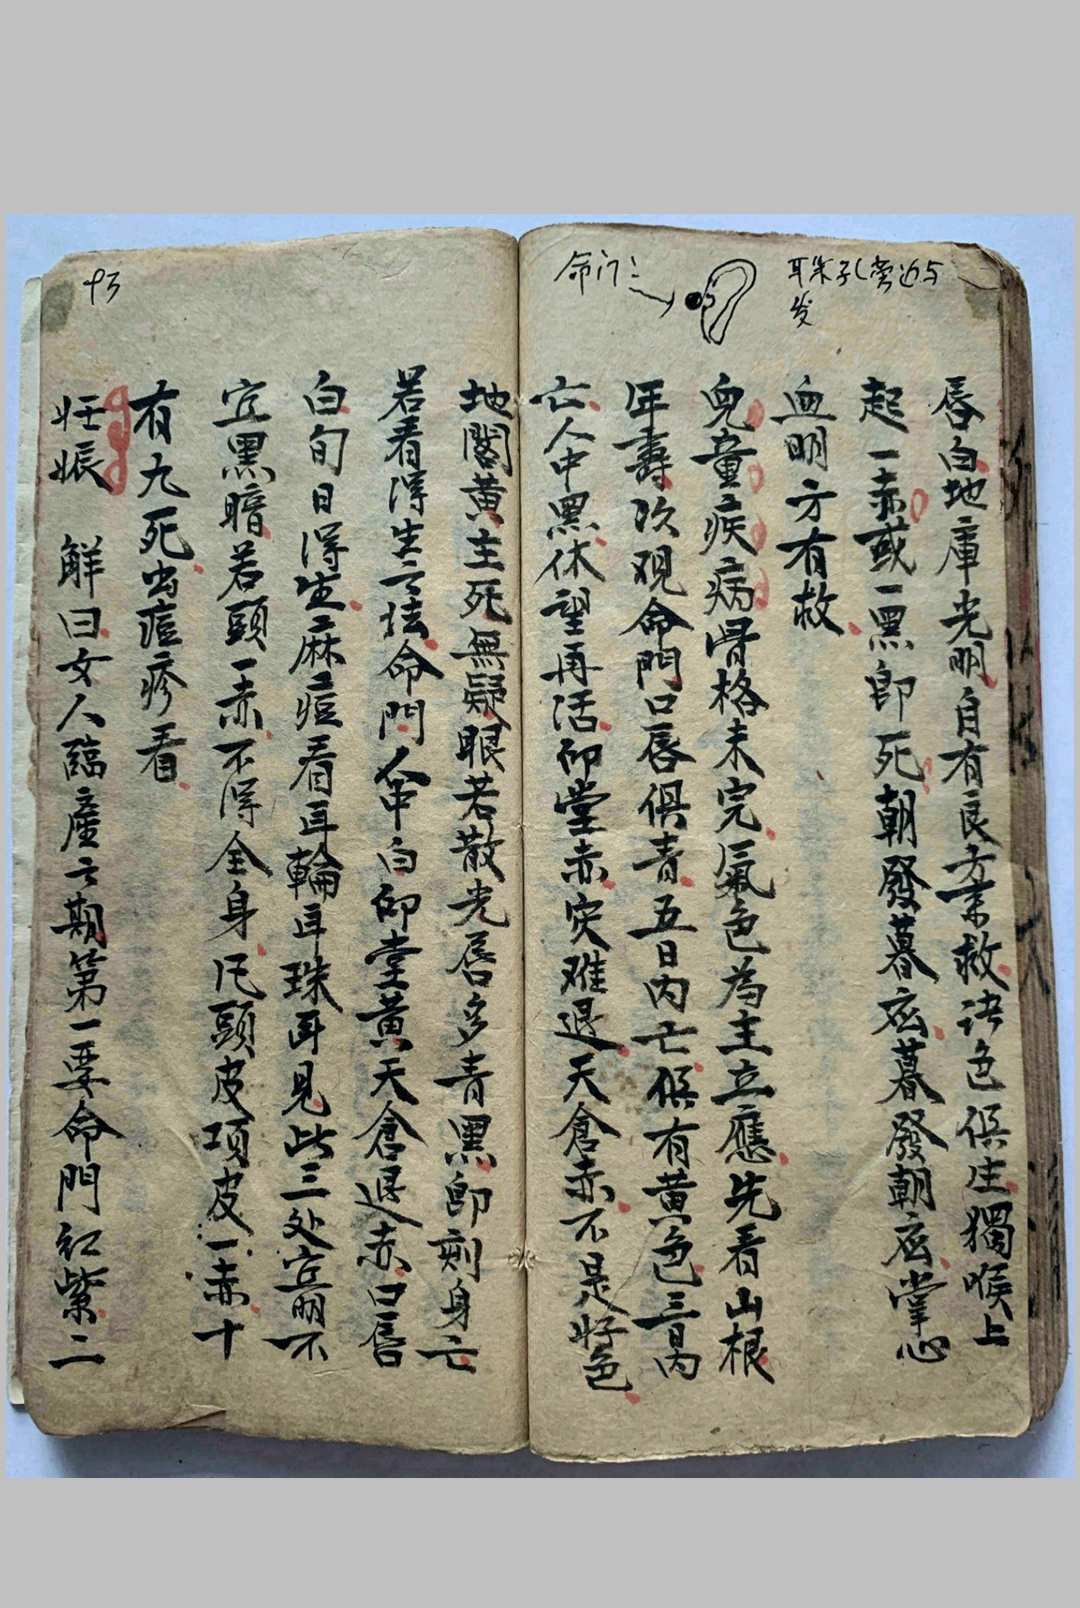 命门:
耳朵孔旁边与
发
唇白地庫光明自有良方案救诀色俱生獨喉上
起一赤或一黑即死朝發暮亥暮發朝亥掌心
血明方有救
兒童疾病骨格未完氣色為主立應先看山根
年壽次观命門口唇俱青五日内亡俱有黄色三日内
亡人中黑休望再活卯堂赤灾难退天倉赤不是好色
地閣黄主死無疑眼若散光唇多青黑即刻身亡
若看得生之法命門人中白卯堂黄天倉退赤曰唇
白旬日得生麻痘看耳輪耳珠耳見此三处宜明不
宜黑暗若頭一赤不得全身凡頭皮項皮一赤十
有九死出痘疹看
妊娠 解曰女人臨產之期第一要命門红紫二
93